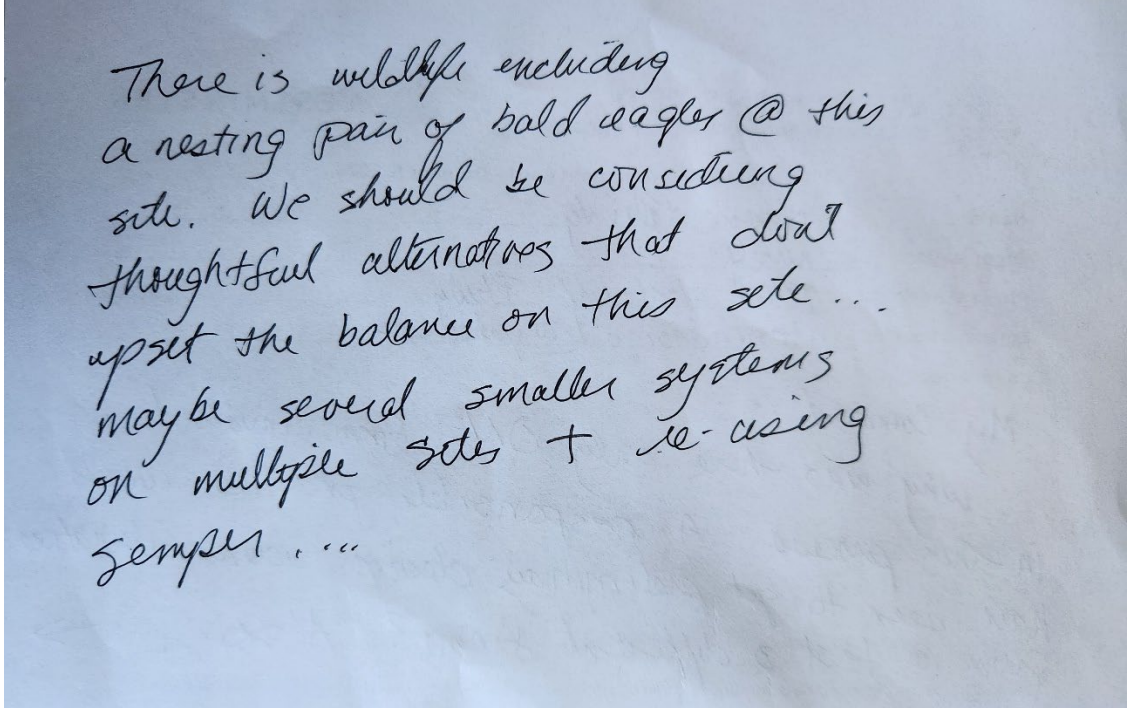 There is wildlife including
a nesting pair of bald eagles @ this
site. We should be considering
thoughtful alternatives that don't
upset the balance on this site...
maybe several smaller systems
on multiple sites + re-using
Semper....